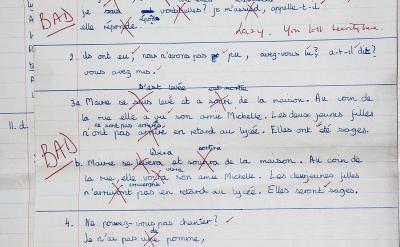 je suis voudriez? je m'assied, appelle-t-il
BAD
elle réponde
Lazy. You
2. ils ont eu, nous n'avons pas pu, avez-vous lu? a-t-il dit?
vous avez mis.
s'est levée est sortie
3a. Marie se sous levé et a sortir de la maison. Au coin de
la rue elle a vu son amie Michelle. Les deux jeunes filles
ne sont pas arrivées
n'ont pas arrivé en retard au lycée. Elles ont été sages.
11. d.
BAD
lèvera sortira
b. Marie se levera et sortira de la maison. Au coin de
verra
la rue, elle voira son amie Michelle. Les deux jeunes filles
n'arriveront pas en retard au lycée. Elles seront sages.
4. Ne pouvez-vous pas chanter?
de
Je n'ai pas une pomme,